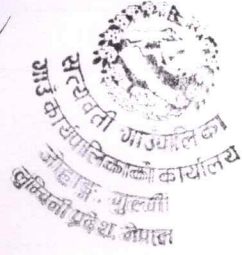 सत्यवती गाउँपालिका
गाउँ कार्यपालिकाको कार्यालय
जोहाङ्ग, गुल्मी
लुम्बिनी प्रदेश, नेपाल